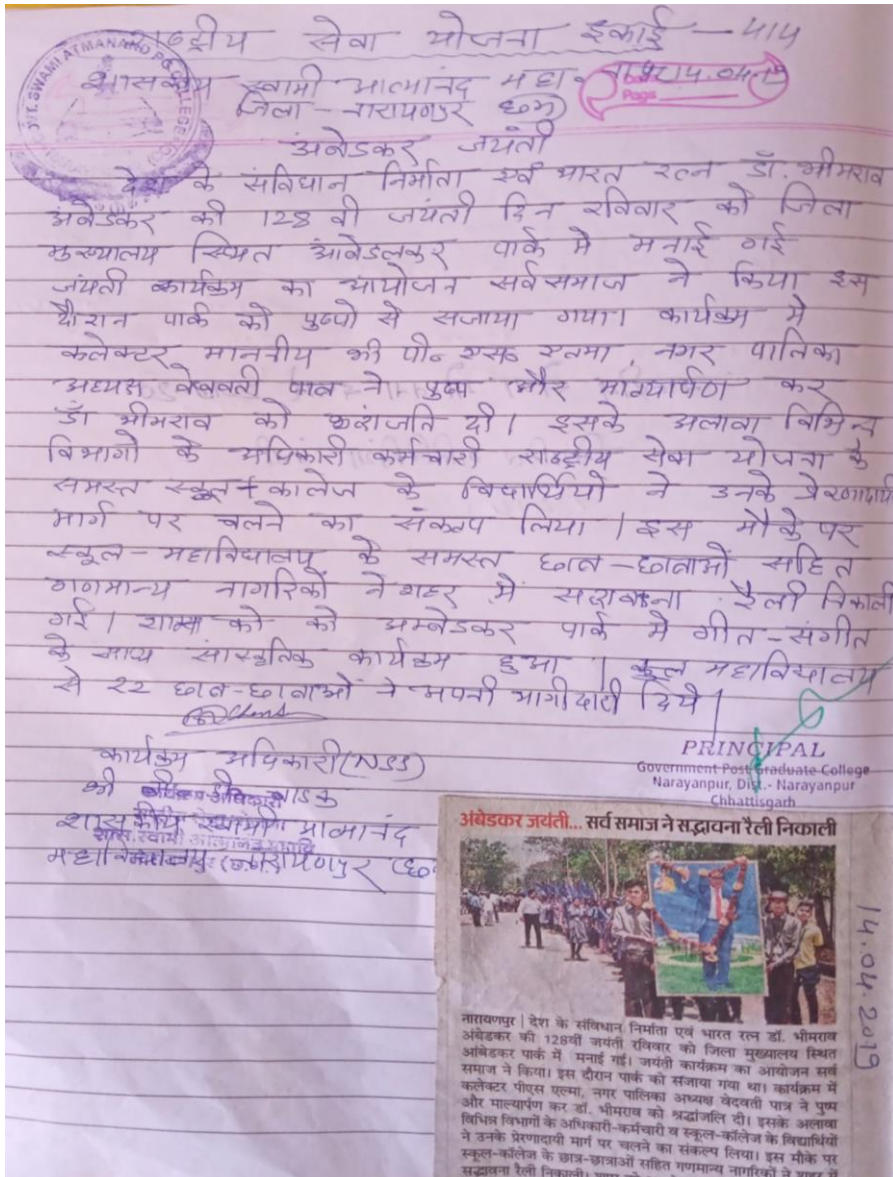 राष्ट्रीय सेवा योजना इकाई -
शासकीय स्वामी आत्मानंद महा.
जिला - नारायणपुर छग
GOVT. SWAMI ATMANAND PG COLLEGE
Page
अंबेडकर जयंती
देश के संविधान निर्माता एवं भारत रत्न डॉ. भीमराव
अंबेडकर की 128 वी जयंती दिन रविवार को जिला
मुख्यालय स्थित आंबेडलकर पार्क मे मनाई गई
जयंती कार्यक्रम का आयोजन सर्वसमाज ने किया इस
दौरान पार्क को पुष्पो से सजाया गया। कार्यक्रम मे
कलेक्टर माननीय श्री पी० एस० एलमा, नगर पालिका
अध्यक्ष पात्र ने पुष्प और माल्यार्पण कर
डॉ भीमराव को श्रद्धांजलि दी। इसके अलावा विभिन्न
विभागो के अधिकारी कर्मचारी राष्ट्रीय सेवा योजना के
समस्त स्कूल + कालेज के विद्यार्थियो ने उनके प्रेरणादायी
मार्ग पर चलने का संकल्प लिया। इस मौके पर
स्कूल - महाविद्यालय के समस्त छात्र - छात्राओं सहित
गणमान्य नागरिकों ने शहर में रैली निकाली
गई। शाम को को अम्बेडकर पार्क मे गीत - संगीत
के साथ सांस्कृतिक कार्यक्रम हुआ। कुल महाविद्यालय
से 22 छात्र - छात्राओं ने अपनी भागीदारी दिये।
कार्यक्रम अधिकारी (NSS)
श्री
शासकीय स्वामी आत्मानंद
PRINCIPAL
Government Post Graduate College
Narayanpur, Dist.- Narayanpur
Chhattisgarh
अंबेडकर जयंती... सर्व समाज ने सद्भावना रैली निकाली
14.04.2019
नारायणपुर | देश के संविधान निर्माता एवं भारत रत्न डॉ. भीमराव
अंबेडकर की 128वीं जयंती रविवार को जिला मुख्यालय स्थित
आंबेडकर पार्क में मनाई गई। जयंती कार्यक्रम का आयोजन सर्व
समाज ने किया। इस दौरान पार्क को सजाया गया था। कार्यक्रम में
कलेक्टर पीएस एल्मा, नगर पालिका अध्यक्ष वेदवती पात्र ने पुष्प
और माल्यार्पण कर डॉ. भीमराव को श्रद्धांजलि दी। इसके अलावा
विभिन्न विभागों के अधिकारी-कर्मचारी व स्कूल-कॉलेज के विद्यार्थियों
ने उनके प्रेरणादायी मार्ग पर चलने का संकल्प लिया। इस मौके पर
स्कूल-कॉलेज के छात्र-छात्राओं सहित गणमान्य नागरिकों ने शहर में
सद्भावना रैली निकाली।